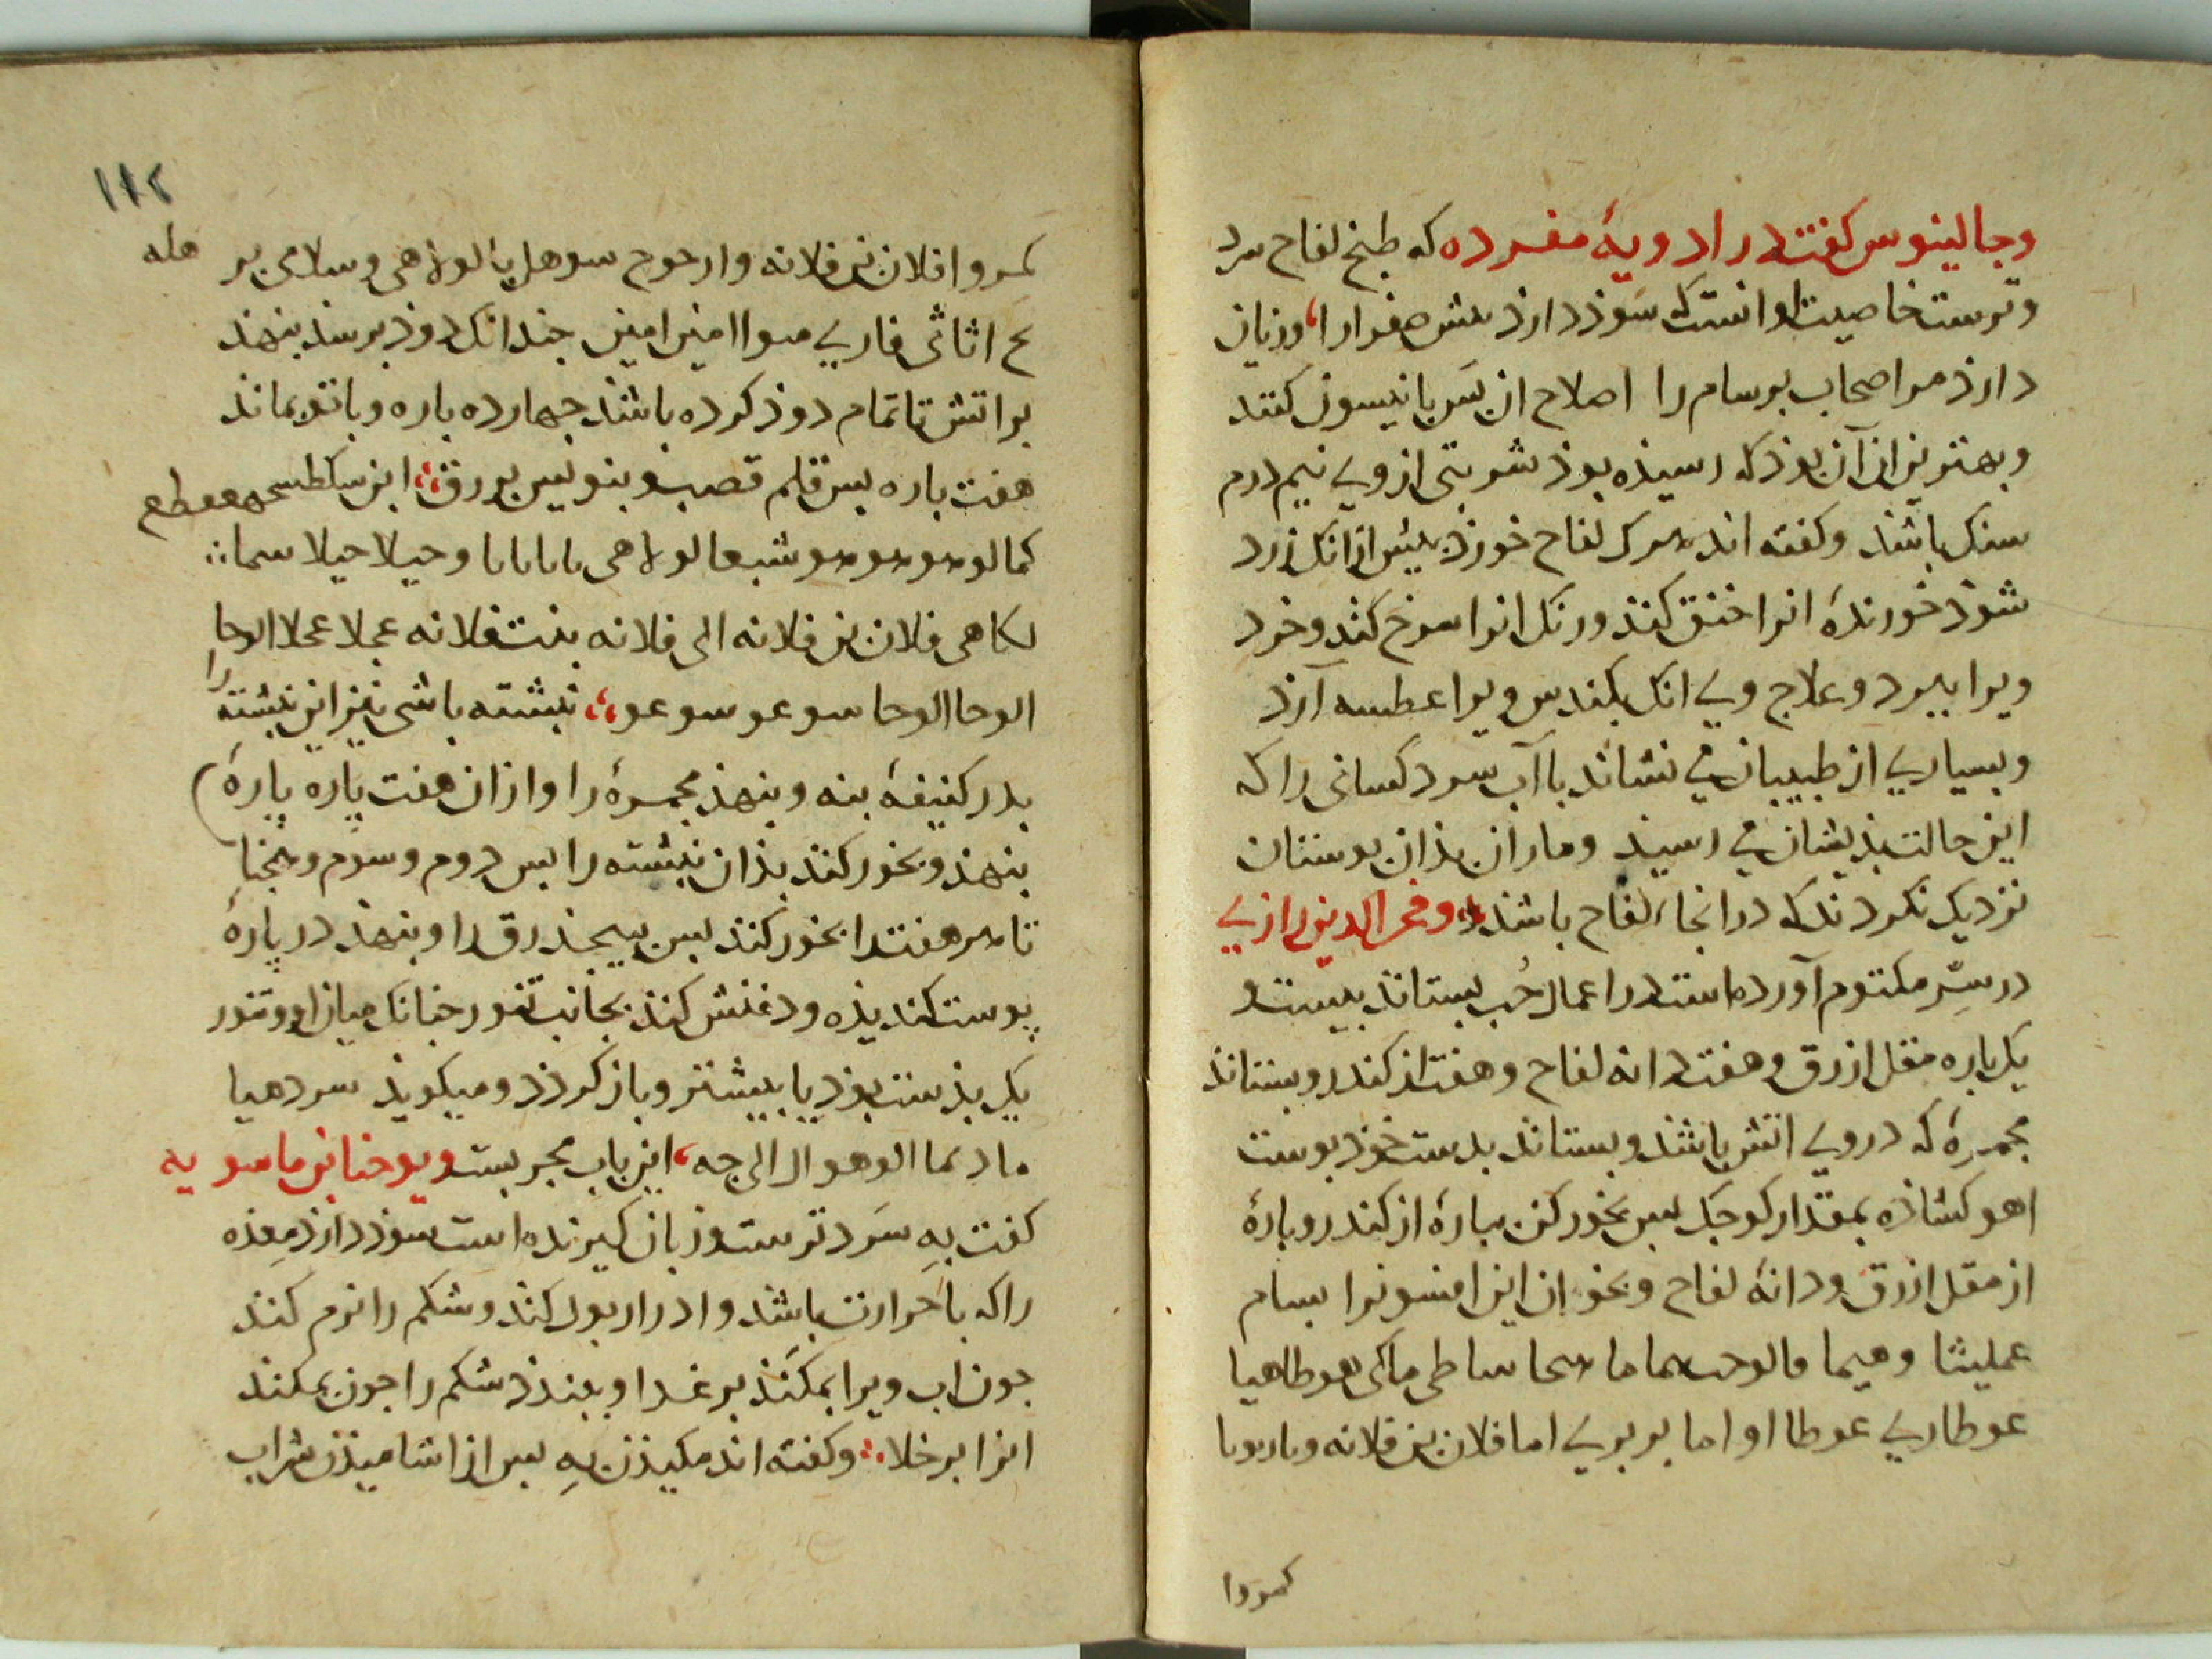 وجالینوس کفتست در ادویهٔ مفرده که طبخ لفاح سرد
وترست خاصیت او انست که سوذ دارذ مش صفرا را، وزیان
دارذ مر اصحاب برسام را اصلاح ان سر بانیسون کنند
وبهترین ان آن بوذ که رسیذه بوذ شربتی از وی نیم درم
سنک باشذ وکفته اند هرکه لفاح خورذ بیش از انک زرد
شوذ خورندهٔ انرا خنق کند ورنک انرا سرخ کند وخرد
ویرا ببرد وعلاج وی انک بکندس ویرا عطسه آرذ
وبسیاری از طبیبان می نشاند با آب سرد کسانی را که
این حالت بذیشان می رسید وماران بذان بوستان
نزدیک نکردند که در انجا لفاح باشذ وفخر الدین رازی
در سِرّ مکتوم آورده است در اعمال حُب بستاند بیست و
یک باره مقل ازرق وهفت دانه لفاح وهفت از کندر وبستاند
مجمرهٔ که در وی اتش باشذ وبستاند بدست خوذ بوست
اهو کشاذه بمقدار کوجک بس بخور کن بپارهٔ از کندر وبارهٔ
از مقل ازرق ودانهٔ لفاح وبخوان این افسونرا بسام
عملیثا وهیما
عوطاری عوطا او اما بربری اما فلان بن فلانه
کمروا
١١٢
کمروا فلان بن فلانه وارحوح سوهل
امین امین جندانک دوذ برسد بنهند
بر اتش تا تمام دوذ کرده باشند جهارده باره وباتو بماند
هفت باره بس قلم قصب وبنویس بر ورق، این
کمالو هو هو هو هو شبعا
لکاهی فلان بن فلانه الی فلانه بنت فلانه عجلا عجلا الوحا
الوحا الوحا سوعو سوعو، نبشته باشی نیز این نبشته را
بدر کنیفهٔ بنه وبنهذ مجمرهٔ را واز ان هفت پاره پارهٔ
بنهذ وبخور کند بذان نبشته را بس دوم وسوم وهمجنا
تا هر هفت را بخور کند بس بیجذ رق را وبنهذ در پارهٔ
پوست کندیذه ودفنش کند بجانب تنور جنانک میان او وتنور
یک بذست بوذ یا بیشتر وباز کردذ ومیکویذ سر دهیا
این باب مجربست ویوحنا بن ماسویه
کفت بهِ سَرد ترست وزبان کیرنده است سوذ دارذ مِعذه
را که با حَرارت باشذ وادرار بول کند وشکم را نرم کند
جون اب ویرا بمکند بر غذا وببندذ شکم را جون بمکند
انرا بر خلا، وکفته اند مکیذن بهِ بس از اشامیذن شراب